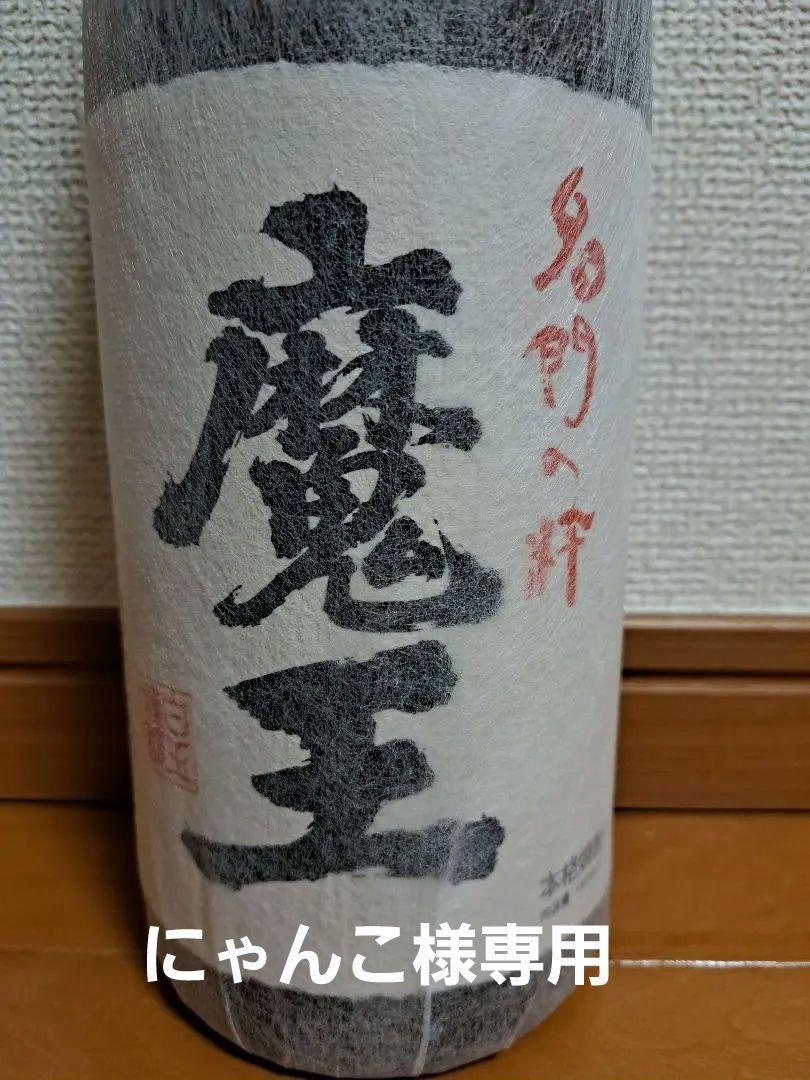 名門の粋
魔王
本格焼酎
にゃんこ様専用